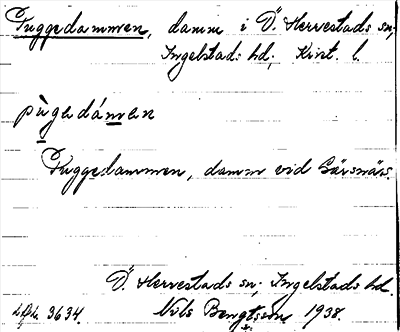 Puggedammen, damm i Ö. Herrestads sn;
Ingelstads hd; Krist. l.
pùgədámən
Puggedammen, damm vid Gärsnäs.
Ö. Herrestads sn, Ingelstads hd.
3634. Nils Bengtsson 1938.